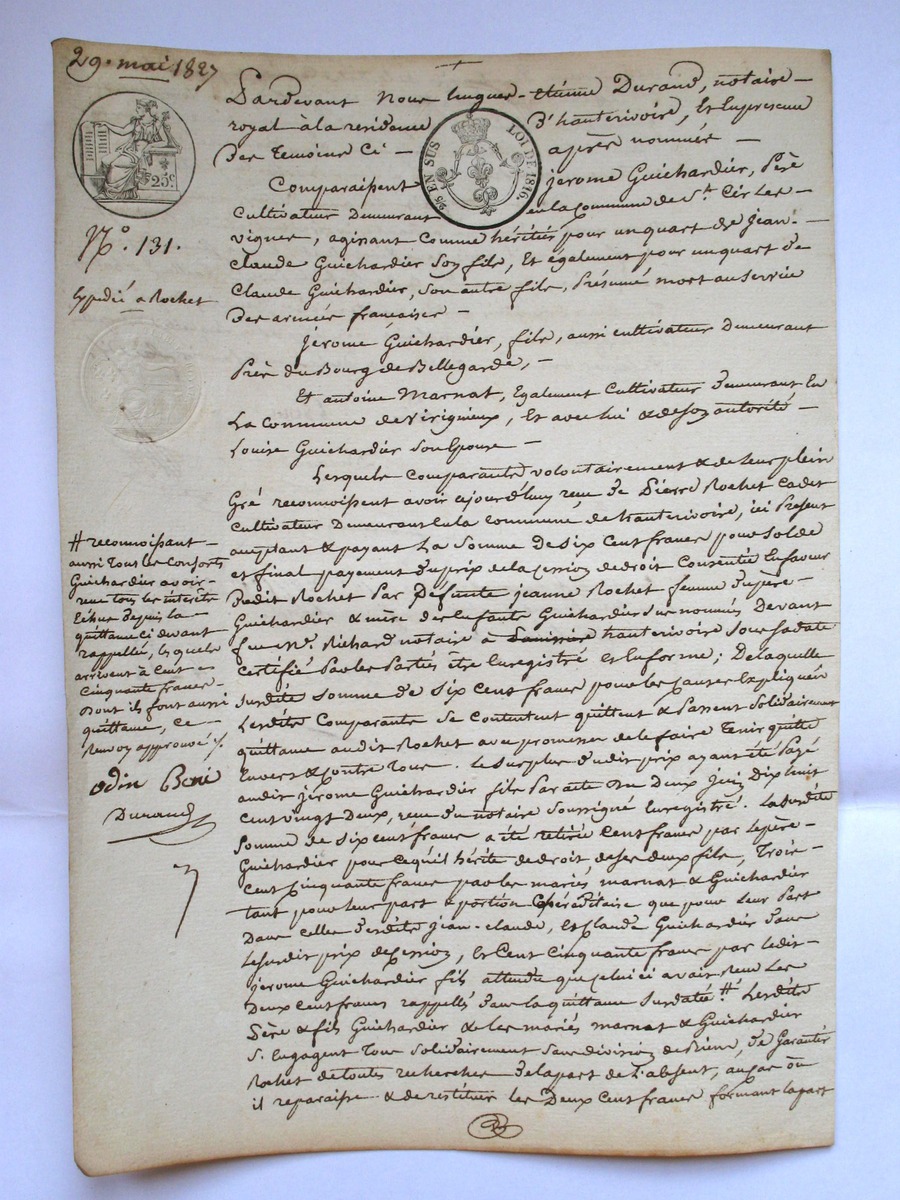 29. mai 1827
25c.
25c EN SUS LOI DE 1816.
N° 131.
Expedié a Rochet
Pardevant Nous hugues-étienne Durand, notaire
royal à la residence d'hauterivoire, Et En presence
Des temoins Ci après nommés
Comparaissent jerome Guichardier, Père
Cultivateur Demeurant en la Commune de St. Cir Les
vignes, agissant Comme héritiés pour un quart de Jean-
Claude Guichardier Son fils, Et également pour un quart de
Claude Guichardier, Son autre fils, Présumé mort au Service
Des armées françaises
Jérome Guichardier, fils, aussi cultivateur Demeurant
Près du Bourg de Bellegarde,
Et antoine Marnat, Egalement Cultivateur demeurant En
La Commune de Virigneux, Et avec lui & de Son autorité
Louise Guichardier Son Epouse
Lesquels Comparants volontairement & de leur plein
Gré reconnoissent avoir cejourd'huy reçu de Pierre Rochet cadet
Cultivateur Demeurant En la Commune de hauterivoire, ici Present
acceptant & payant La Somme De Six Cent francs pour Solde
et final payement du prix de la Cession de droit Consentie En faveur
Dudit Rochet Par Défunte jeanne Rochet femme du père
Guichardier & mère des Enfants Guichardier Sus nommés Devant
feu Me. Richard notaire à hauterivoire Sous Sa date
Certifié Par les Parties être Enregistré et En forme; De laquelle
Susdite Somme de Six Cent francs pour les Causes Expliquées
Lesdits Comparants Se Contentent quittent & Passent Solidairement
quittance audit Rochet avec promesse de le faire Tenir quitte
Envers & Contre Tous. Le Surplus dudit prix ayant été Payé
audit jérome Guichardier fils Par acte du Deux juin Dix huit
Cent vingt Deux, reçu du notaire Soussigné Enregistré. La Susdite
Somme de Six Cent francs a été retirée Cent francs par le père
Guichardier pour Ce qu'il hérite de droit, de Ses deux fils, Trois
Cent Cinquante francs par les mariés marnat & Guichardier
tant pour leur part & portion héréditaire que pour Leur Part
Dans celles desdits jean-claude, Et Claude Guichardier dans
Le Susdit prix de Cession, Et Cent Cinquante francs par ledit
jerome Guichardier fils attendu que celui ci avait Reçu Les
Deux Cent francs rappellés dans la quittance Susdatée. # Lesdits
Père & fils Guichardier & les mariés marnat & Guichardier
S'Engagent Tous Solidairement Sans division de Biens, de Garantir
Rochet de toutes recherches de la part de l'absent, au cas où
il reparaisse & de restituer les Deux Cent francs formant la part
# reconnoissant
aussi Tous les Consorts
Guichardier avoir
reçu tous les intérêts
Echus depuis la
quittance Ci devant
rappellée, lesquels
arrivent à Cent
Cinquante francs
Dont ils font aussi
quittance, Ce
Renvoy approuvé ./.
odin Beni
Durand